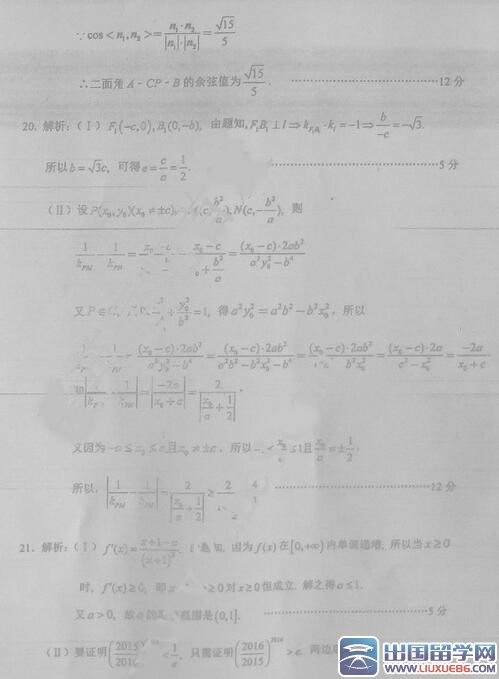 ∵cos<n₁,n₂>= n₁·n₂ / |n₁|·|n₂| = √15/5
∴二面角 A-CP-B 的余弦值为 √15/5. ……12分
20. 解析:(Ⅰ) F₁(-c,0),B₁(0,-b), 由题知,F₁B₁⊥l⇒k_{F₁B₁}·k_l=-1⇒ b/-c =-√3.
所以b=√3c, 可得e=c/a=1/2. ……5分
(Ⅱ) 设P(x₀,y₀)(x₀≠±c), (c, b²/a),N(c,-b²/a), 则
1/k_{PM} - 1/k_{PN} = x₀ - (x₀-c)/(y₀+b²/a) = (x₀-c)·2ab² / (a²y₀²-b⁴)
又P∈ + y₀²/b² =1, 得a²y₀²=a²b²-b²x₀², 所以
(x₀-c)·2ab² / (a²y₀²-b⁴) = (x₀-c)·2ab² / (a²b²-b²x₀²-b⁴) = (x₀-c)·2ab² / b²x₀² = (x₀-c)·2a / (c²-x₀²) = -2a/(x₀+c)
= |-2a/(x₀+c)| = 2/|x₀/a+1/2|,
又因为-a≤x₀≤a,且x₀≠±c, 所以 x₀ ≤1且 x₀/a ≠±1/2,
所以, |1/k_{PM} - 1/k_{PN}| = 2/|x₀/a+1/2| ≥ 2 4 ……12分
21. 解析:(Ⅰ) f'(x)= (x+1-a)/(x+1)². 知, 因为f(x)在[0,+∞)内单调递增, 所以当x≥0
时, f'(x)≥0, 即x ≥0对x≥0恒成立. 解之得a≤1.
又a>0, 故a的 范围是(0,1]. ……5分
(Ⅱ) 要证明 (2015/2016) < 1/e, 只需证明 (2016/2015)²⁰¹⁶ >e, 两边
出国留学网
www.liuxue86.com